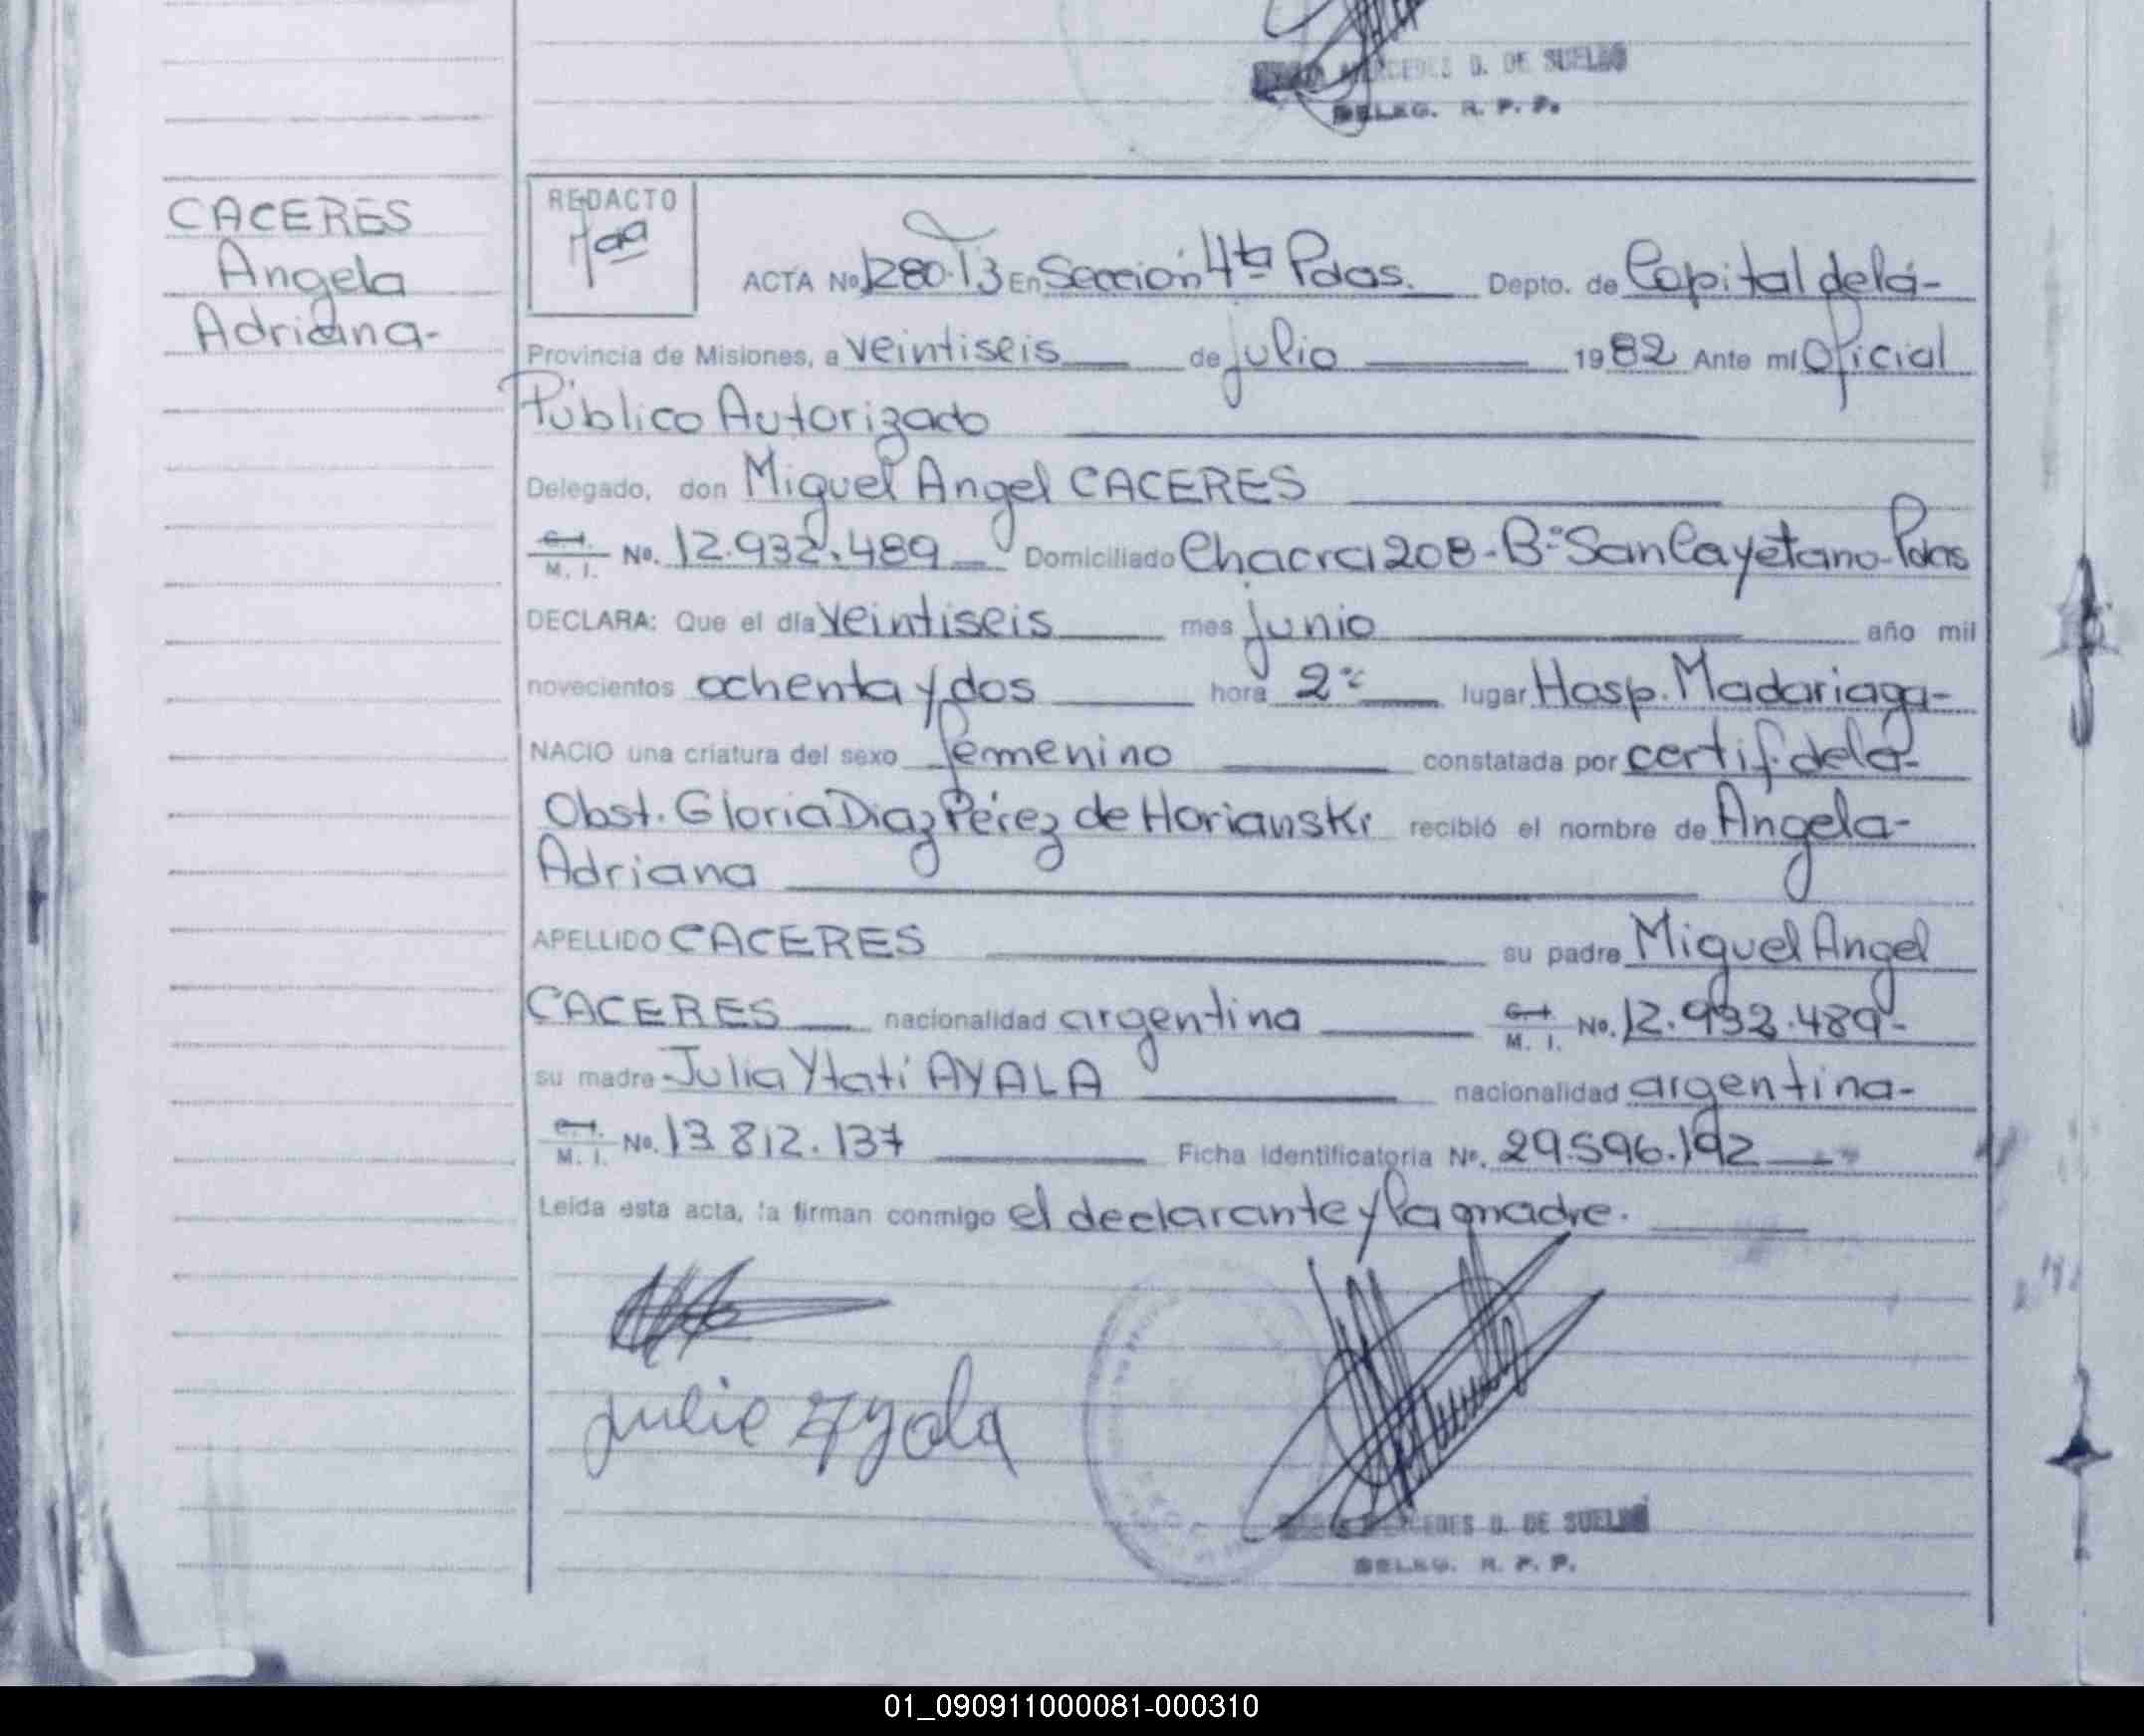 MERCEDES D. DE SUELDO
DELEG. R. P. P.
CACERES
Angela
Adriana-
REDACTO
ACTA No 1280-T3 En Sección 4ta Pdas. Depto. de Capital de la-
Provincia de Misiones, a veintiseis de julio 1982 Ante mí Oficial
Público Autorizado
Delegado, don Miguel Angel CACERES
C.I. M. I. No. 12.932.489 Domiciliado Chacra 208-B° San Cayetano-Pdas
DECLARA: Que el día veintiseis mes junio año mil
novecientos ochenta y dos hora 2 lugar Hosp. Madariaga-
NACIO una criatura del sexo femenino constatada por certif. de la-
Obst. Gloria Diaz Pérez de Horianski recibió el nombre de Angela-
Adriana
APELLIDO CACERES su padre Miguel Angel
CACERES nacionalidad argentina C.I. M. I. No. 12.932.489-
su madre Julia Ytatí AYALA nacionalidad argentina-
C.I. M. I. No. 13.812.137 Ficha identificatoria No. 29.596.192
Leída esta acta, la firman conmigo el declarante y la madre.
Julia Ayala
MERCEDES D. DE SUELDO
DELEG. R. P. P.
01_090911000081-000310